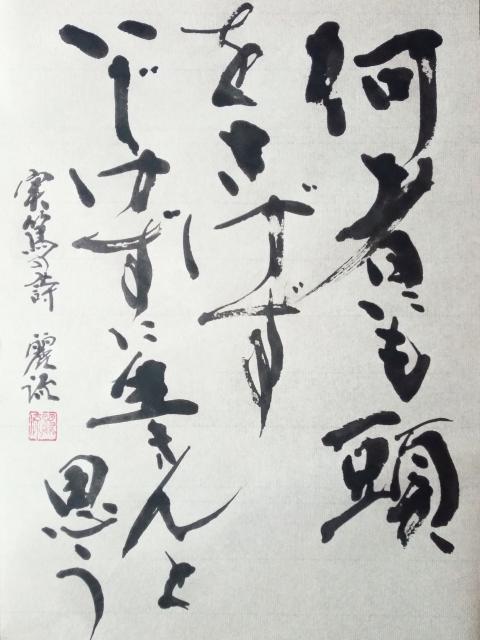 何者にも頭
をさげず
いじけずに生きんと
思う
実篤の詩 麗